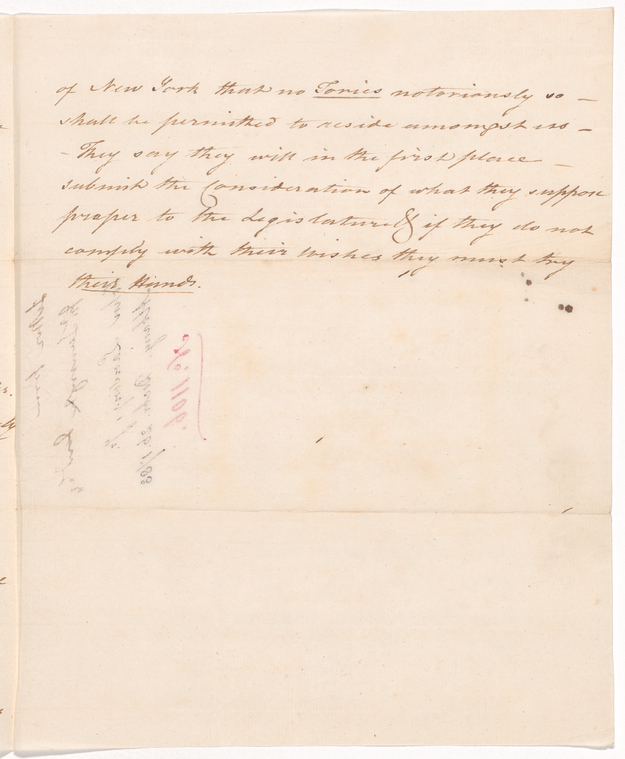 of New York that no Tories notoriously so –
shall be permitted to reside amongst us –
– They say they will in the first place –
submit the Consideration of what they suppose
proper to the Legislature & if they do not
comply with their wishes they must try
their Hands.
No. 1106.